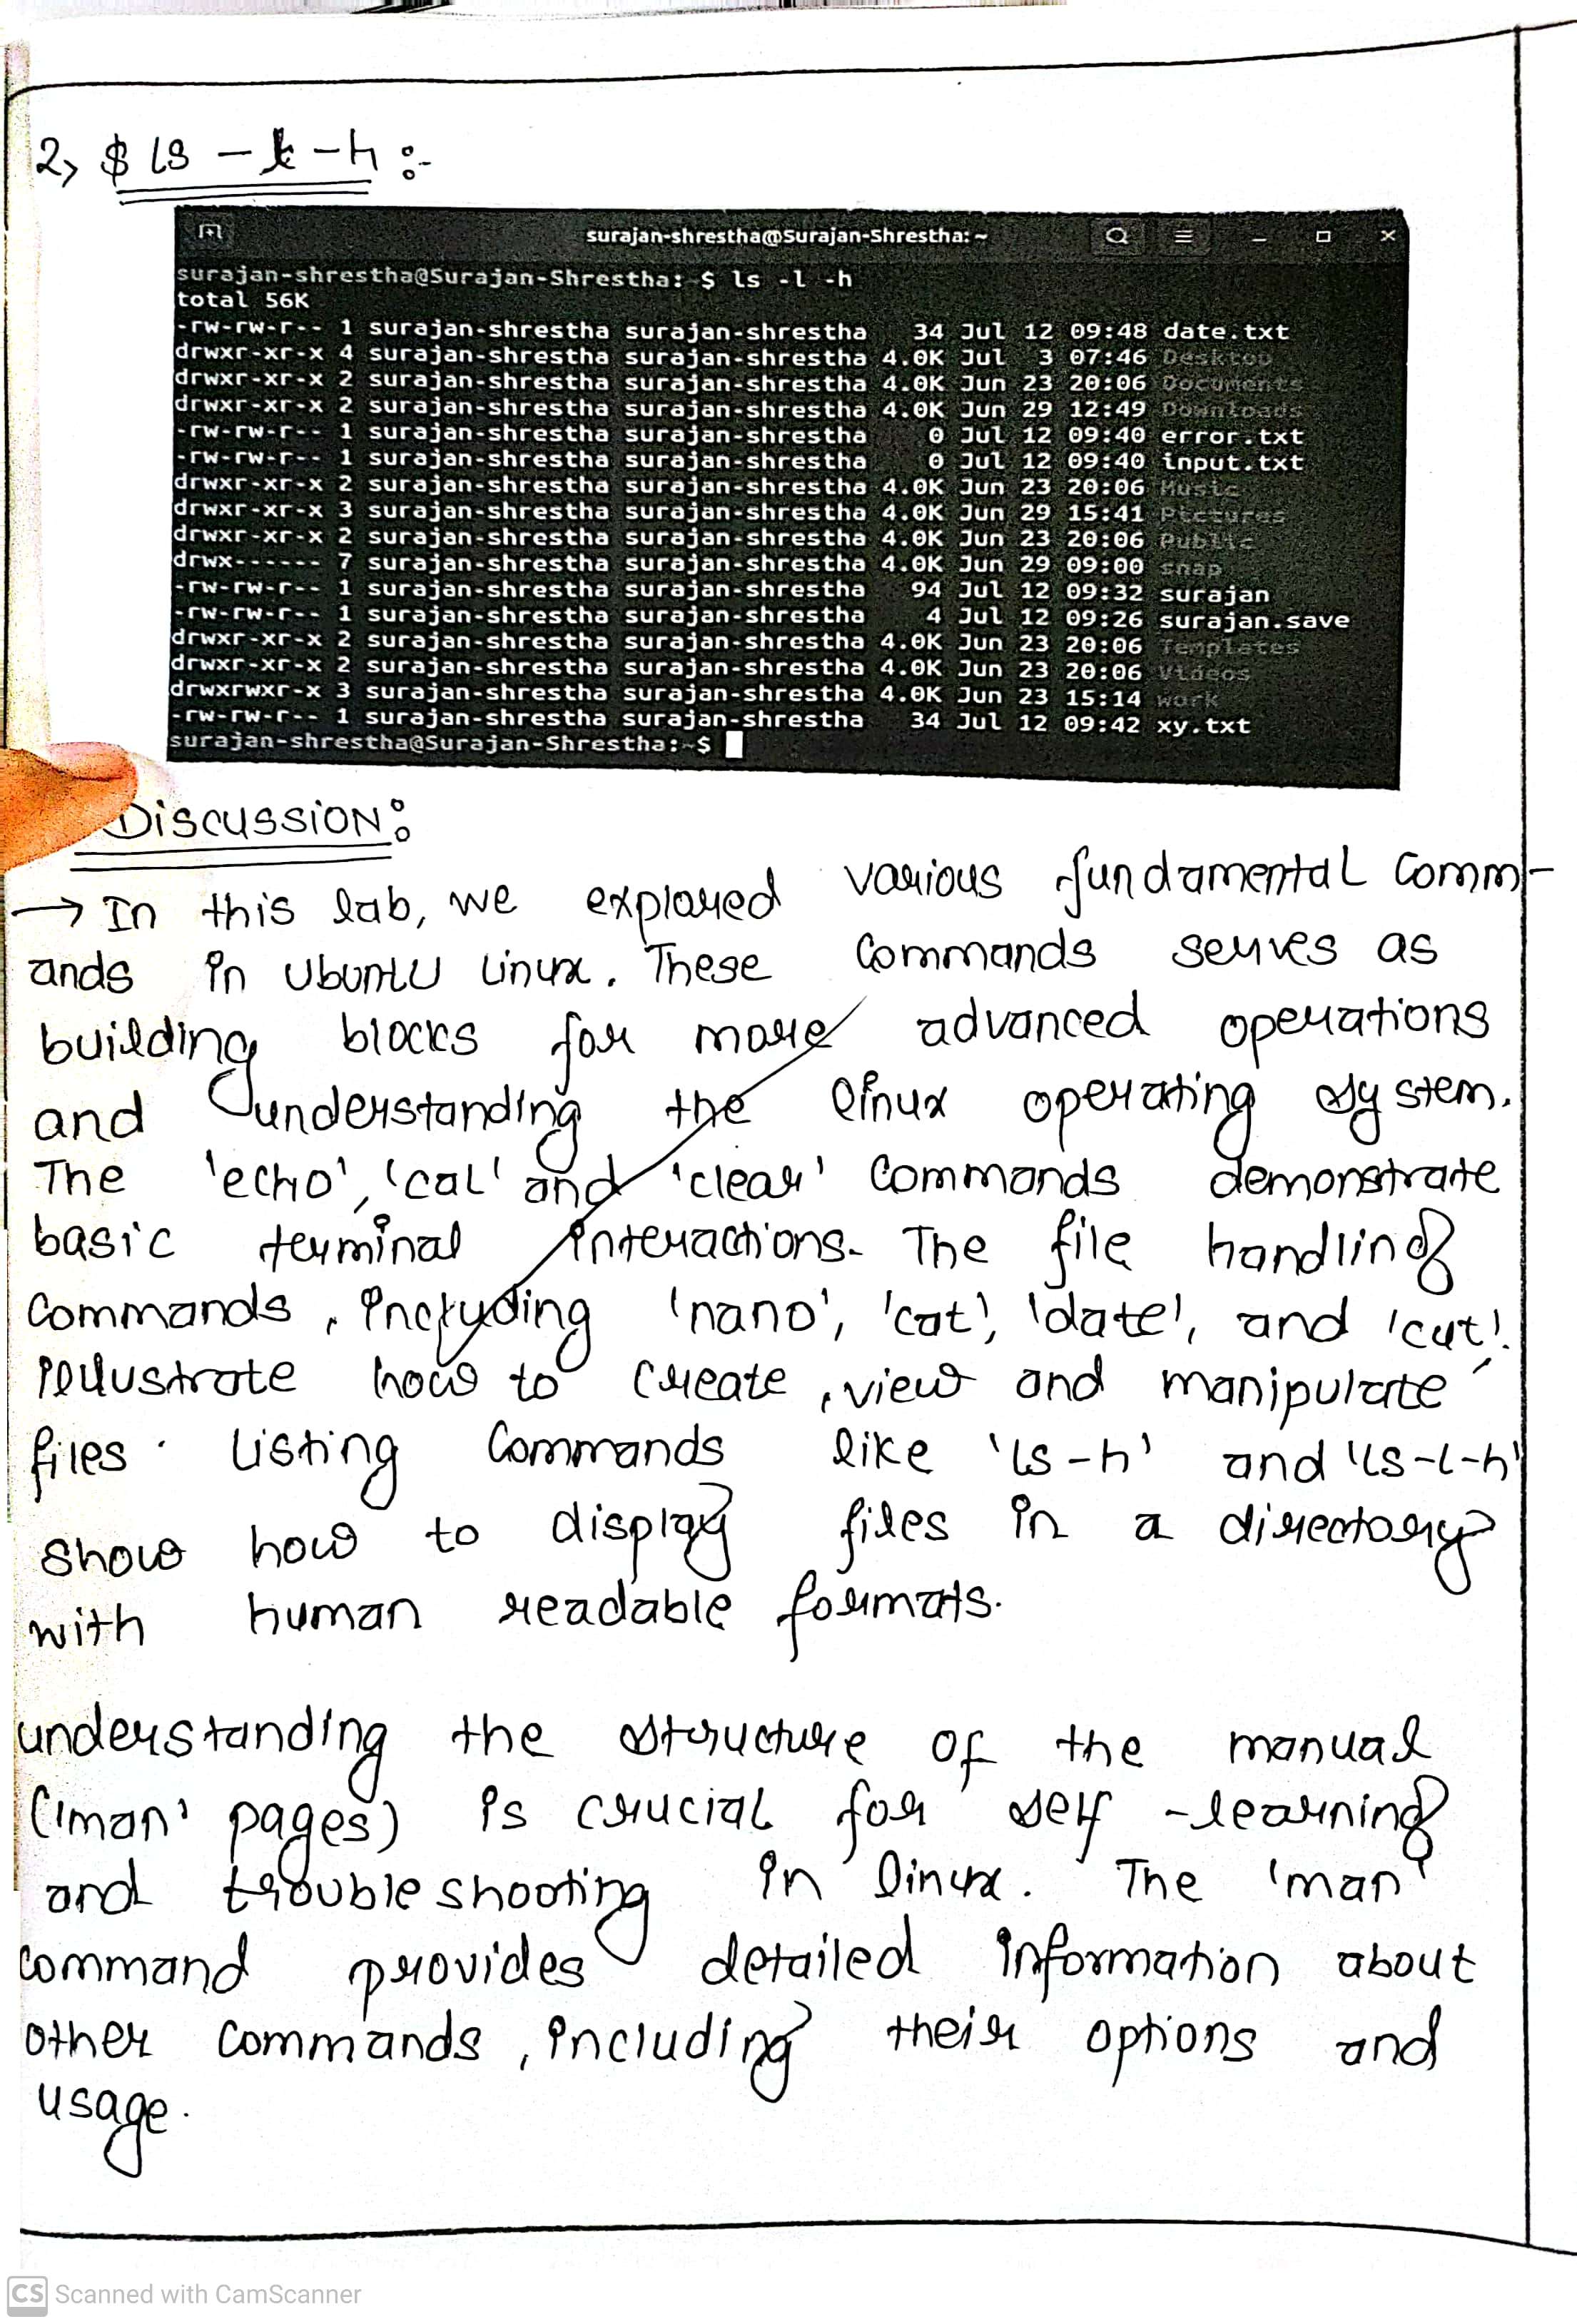 2, $ ls - l - h :-
surajan-shrestha@Surajan-Shrestha: ~
surajan-shrestha@Surajan-Shrestha:~$ ls -l -h
total 56K
-rw-rw-r-- 1 surajan-shrestha surajan-shrestha 34 Jul 12 09:48 date.txt
drwxr-xr-x 4 surajan-shrestha surajan-shrestha 4.0K Jul 3 07:46 Desktop
drwxr-xr-x 2 surajan-shrestha surajan-shrestha 4.0K Jun 23 20:06 Documents
drwxr-xr-x 2 surajan-shrestha surajan-shrestha 4.0K Jun 29 12:49 Downloads
-rw-rw-r-- 1 surajan-shrestha surajan-shrestha 0 Jul 12 09:40 error.txt
-rw-rw-r-- 1 surajan-shrestha surajan-shrestha 0 Jul 12 09:40 input.txt
drwxr-xr-x 2 surajan-shrestha surajan-shrestha 4.0K Jun 23 20:06 Music
drwxr-xr-x 3 surajan-shrestha surajan-shrestha 4.0K Jun 29 15:41 Pictures
drwxr-xr-x 2 surajan-shrestha surajan-shrestha 4.0K Jun 23 20:06 Public
drwx------ 7 surajan-shrestha surajan-shrestha 4.0K Jun 29 09:00 snap
-rw-rw-r-- 1 surajan-shrestha surajan-shrestha 94 Jul 12 09:32 surajan
-rw-rw-r-- 1 surajan-shrestha surajan-shrestha 4 Jul 12 09:26 surajan.save
drwxr-xr-x 2 surajan-shrestha surajan-shrestha 4.0K Jun 23 20:06 Templates
drwxr-xr-x 2 surajan-shrestha surajan-shrestha 4.0K Jun 23 20:06 Videos
drwxrwxr-x 3 surajan-shrestha surajan-shrestha 4.0K Jun 23 15:14 work
-rw-rw-r-- 1 surajan-shrestha surajan-shrestha 34 Jul 12 09:42 xy.txt
surajan-shrestha@Surajan-Shrestha:~$
Discussion:
→ In this lab, we explored various fundamental comm-
ands in Ubuntu Linux. These commands serves as
building blocks for more advanced operations
and understanding the linux operating system.
The 'echo', 'cal' and 'clear' commands demonstrate
basic terminal interactions. The file handling
commands, including 'nano', 'cat', 'date', and 'cut'.
illustrate how to create, view and manipulate
files. Listing commands like 'ls -h' and 'ls -l -h'
show how to display files in a directory
with human readable formats.
understanding the structure of the manual
('man' pages) is crucial for self -learning
and troubleshooting in linux. The 'man'
command provides detailed information about
other commands, including their options and
usage.
CS Scanned with CamScanner